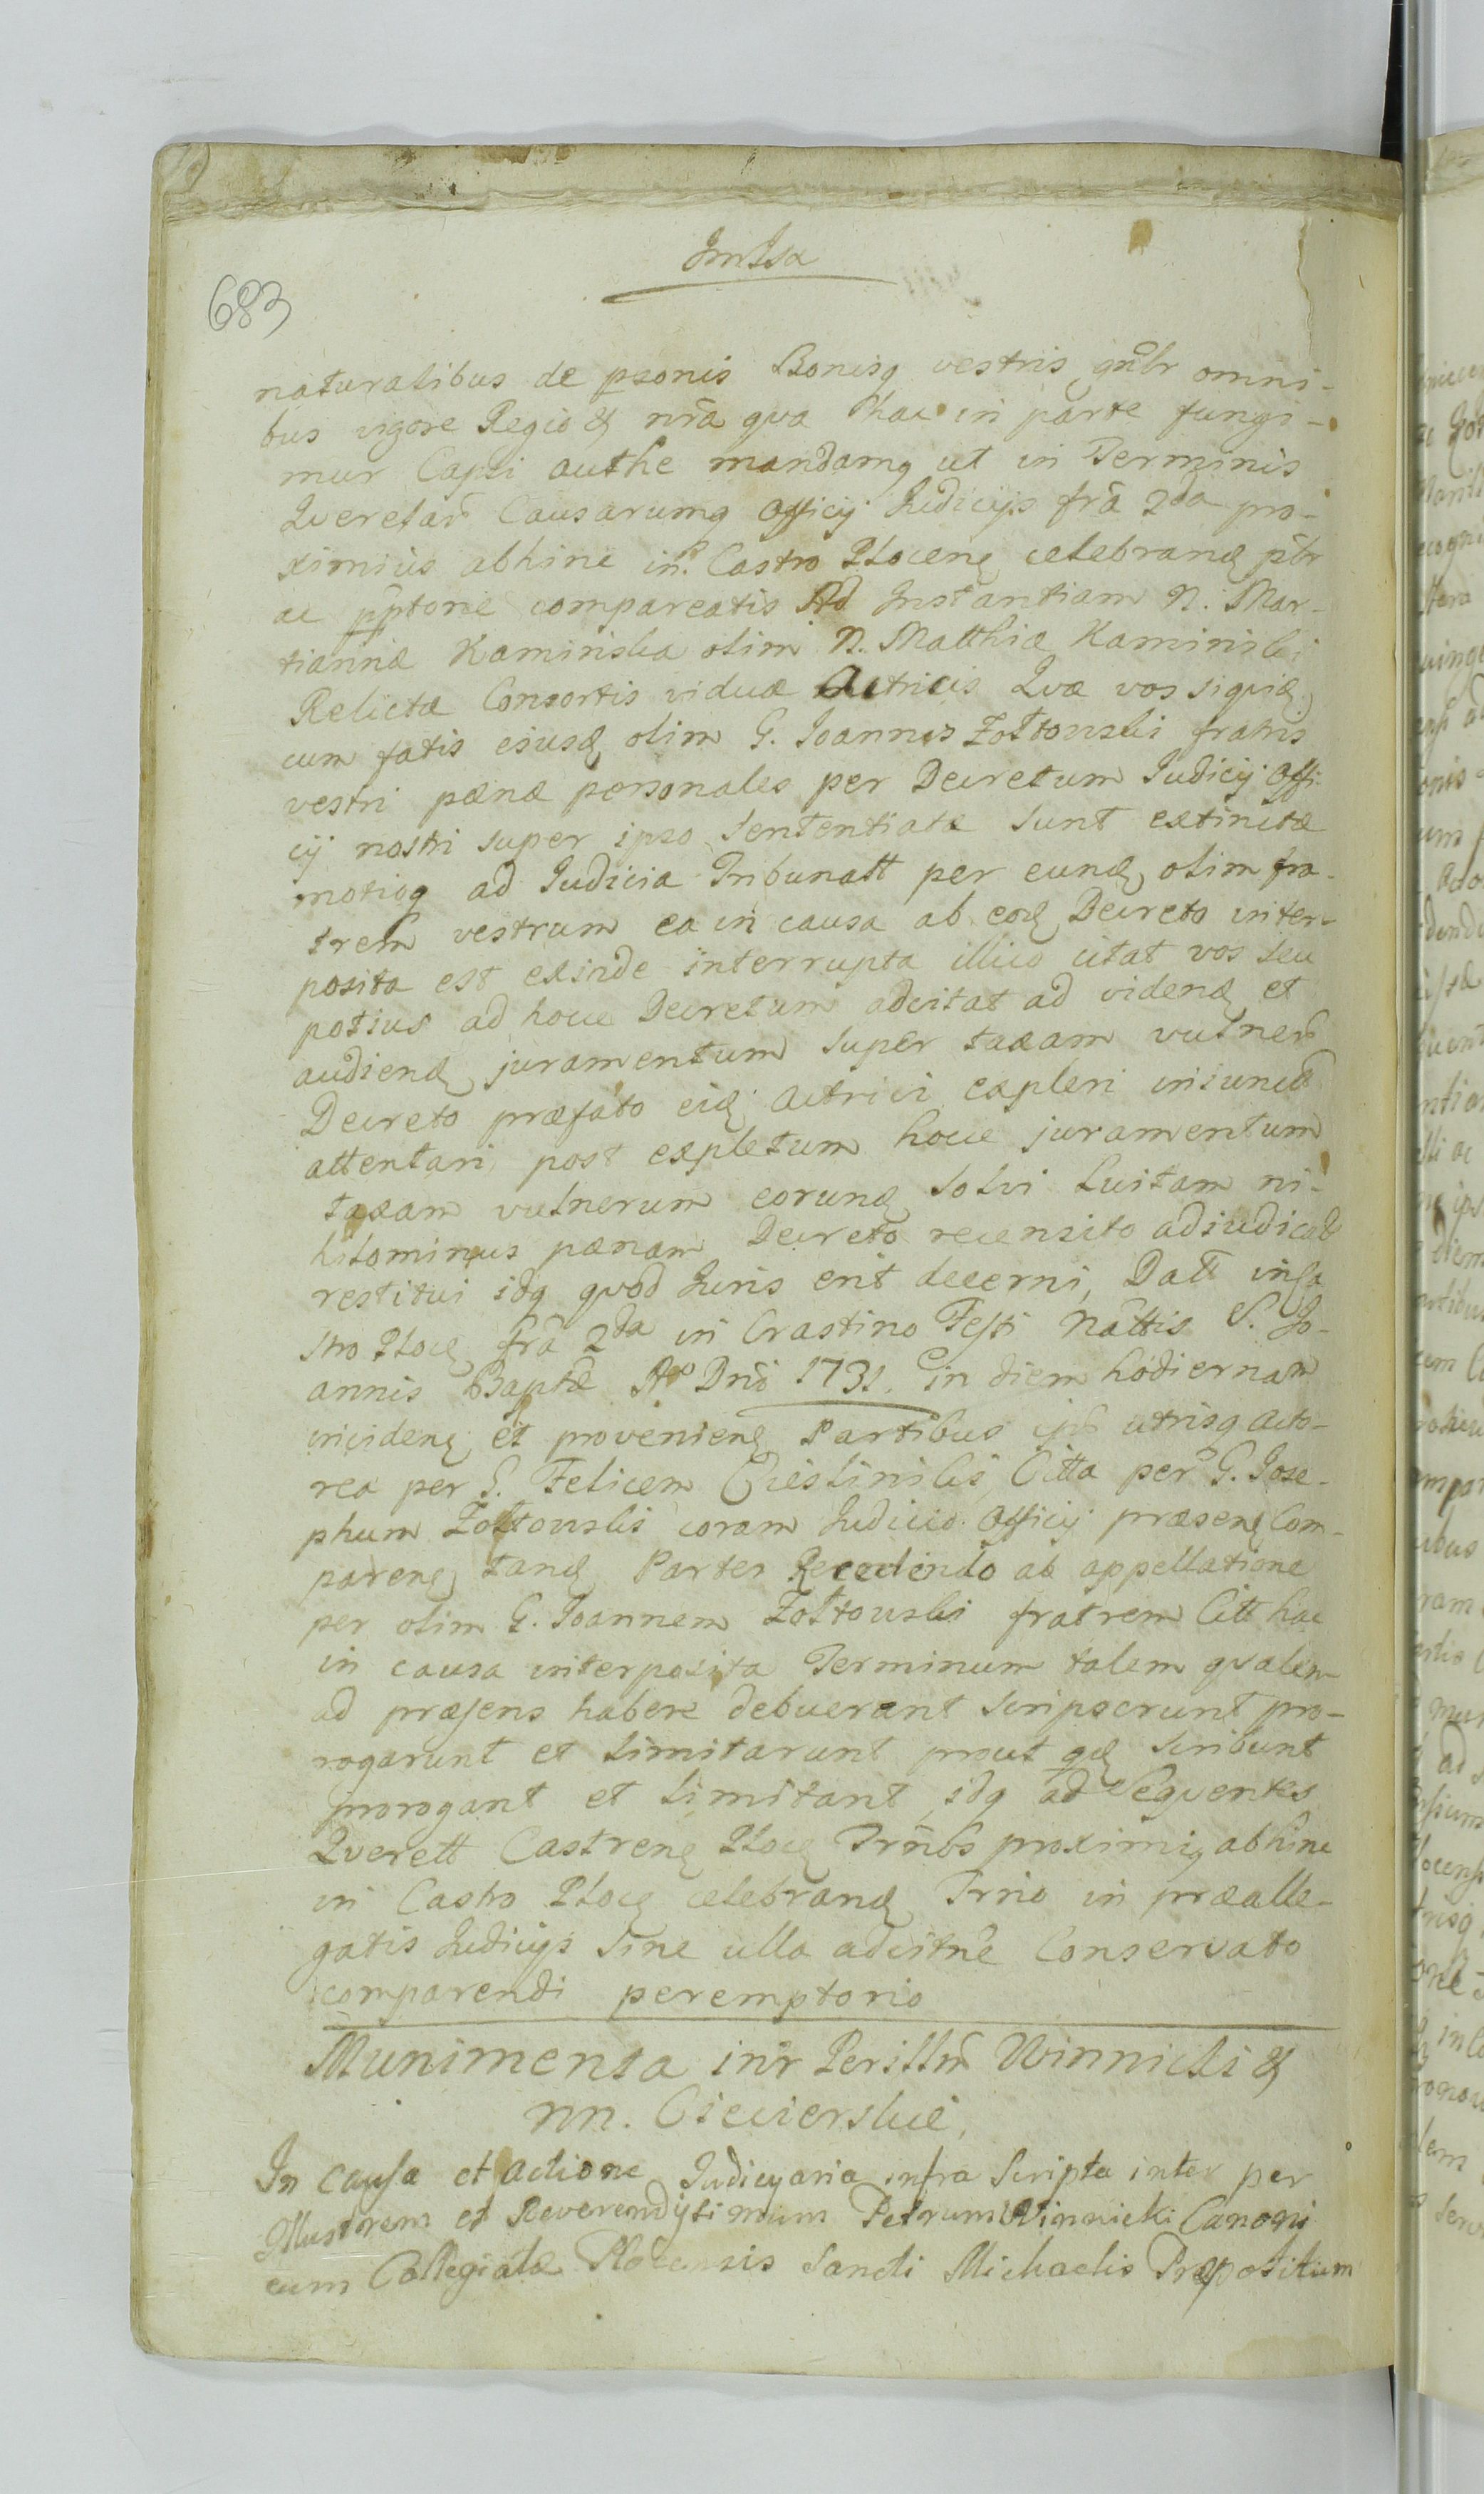 683
naturalibus de psonis Bonisq vestris gnlr omni-
bus vigore Regio & nra qva hac in parte fungi-
mur Capti authe mandamq ut in Terminis
Qveretar Causarumq Officij Iudicijs fra 2da pro-
ximius abhinc in Castro Plocenę celebranę plr
ac pptorie compareatis Ad Instantiam N. Mar-
tiannæ Kaminska olim N. Matthiæ Kaminski
Relictæ Consortis viduæ Actricis Qvæ vos
cum fatis eiusę olim G. Ioannis Zołtowski fratris
vestri pænæ personales per Decretum Iudicij Offi-
cij nostri super ipso sententiatæ sunt extinctæ
motioq ad Iudicia Tribunatt per eunę olim fra-
trem vestrum ea in causa ab eoę Decreto inter-
posita est exinde interrupta illico citat vos seu
potius ad hocce Decretum adcitat ad videnę et
audienę juramentum super taxam vulner
Decreto præfato eię Actrici expleri iniunct
attentari, post expletum hocce juramentum
taxam vulnerum eorunę solvi luitam ni-
hilominus pænam Decreto recensito adiudicat
restitui idq qvod Iuris erit decerni, Datt in Ca
stro Plocę fra 2da in Crastino Festi Nattis S. Jo-
annis Baptæ Ao Dni 1731. in diem hodiernam
incidenę et provenienę Partibus utrisq Acto-
rea per G. Felicem Citta per G. Jose-
phum Zołtowski coram Iudicio Officij præsenę Com-
parenę tanę Partes Recedendo ab appellatione
per olim G. Ioannem Zołtowski fratrem Citt hac
in causa interposita Terminum talem qvalem
ad præsens habere debuerant scripserunt pro-
rogarunt et limitarunt prout qę scribunt
prorogant et limitant idq ad Seqventes
Qverett Castrenę Plocę Trmos proximiq abhinc
in Castro Plocę celebranę Trno in prealle-
gatis Iudicijs Sine ulla adcitne Conservato
comparendi peremptorio
Munimenta intr Perillm Winnicki &
nn.
In causa et actione Iudicyaria infra Scripta inter per
Illustrem et Reverendissimum Petrum Winnicki Canoni
cum Collegiatæ Plocensis Sancti Michaelis Præpositum